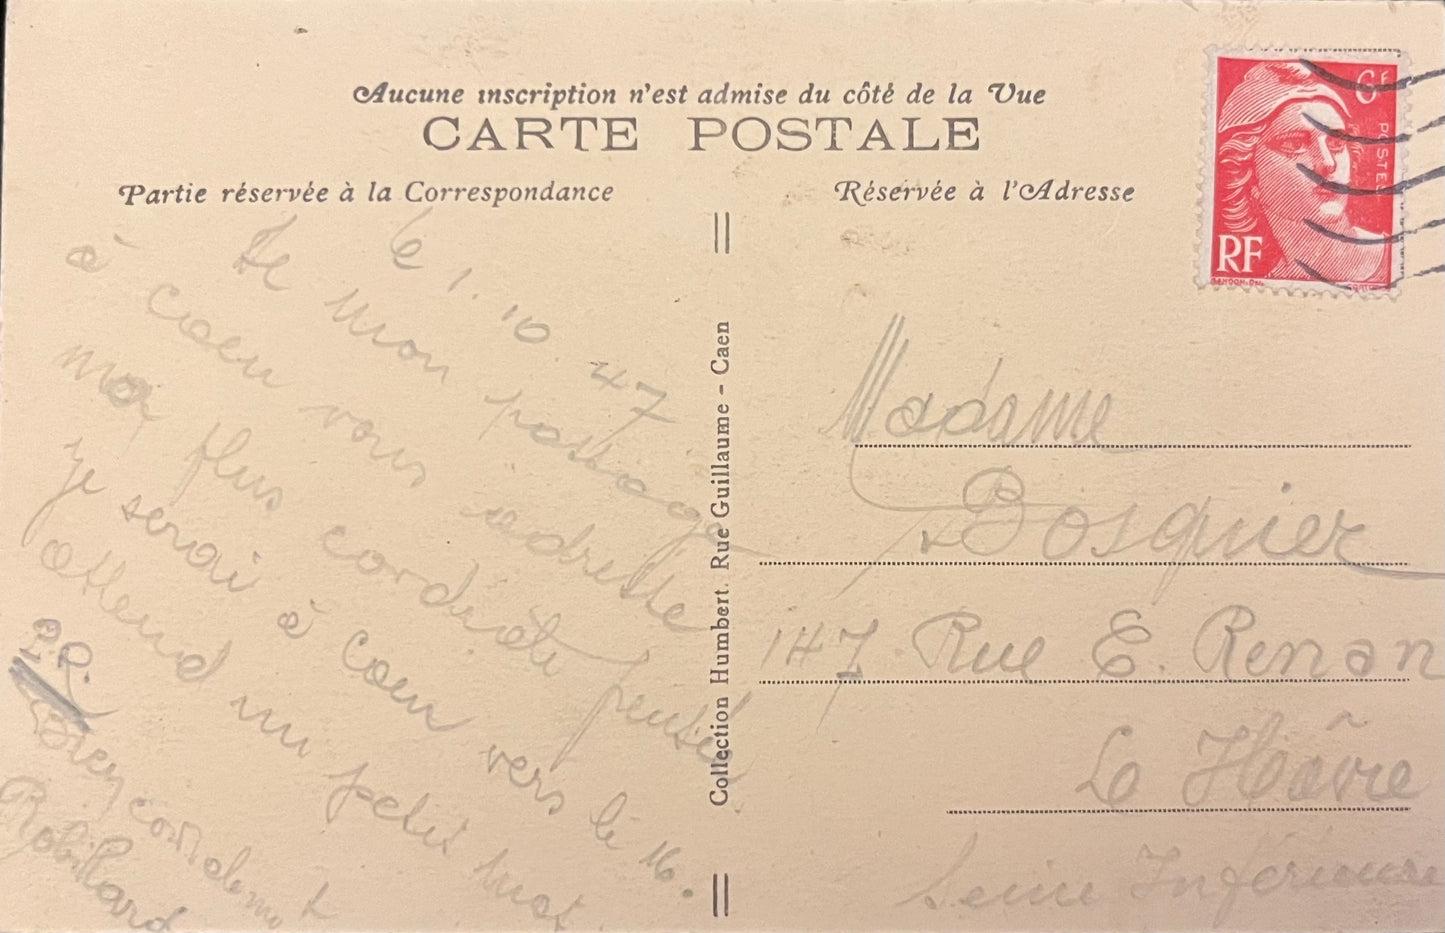 Aucune inscription n'est admise du côté de la Vue
CARTE POSTALE
Partie réservée à la Correspondance
Réservée à l'Adresse
6F
POSTES
RF
GANDON
Le 6.1.10.47
de mon passage
à Caen vous adresse
ma plus cordiale pensée
je serai à Caen vers le 16.
attend un petit mot
Bien cordialement
Robillard
Collection Humbert. Rue Guillaume - Caen
Madame
Bosquier
147 Rue E. Renan
Le Hâvre
Seine Inférieure